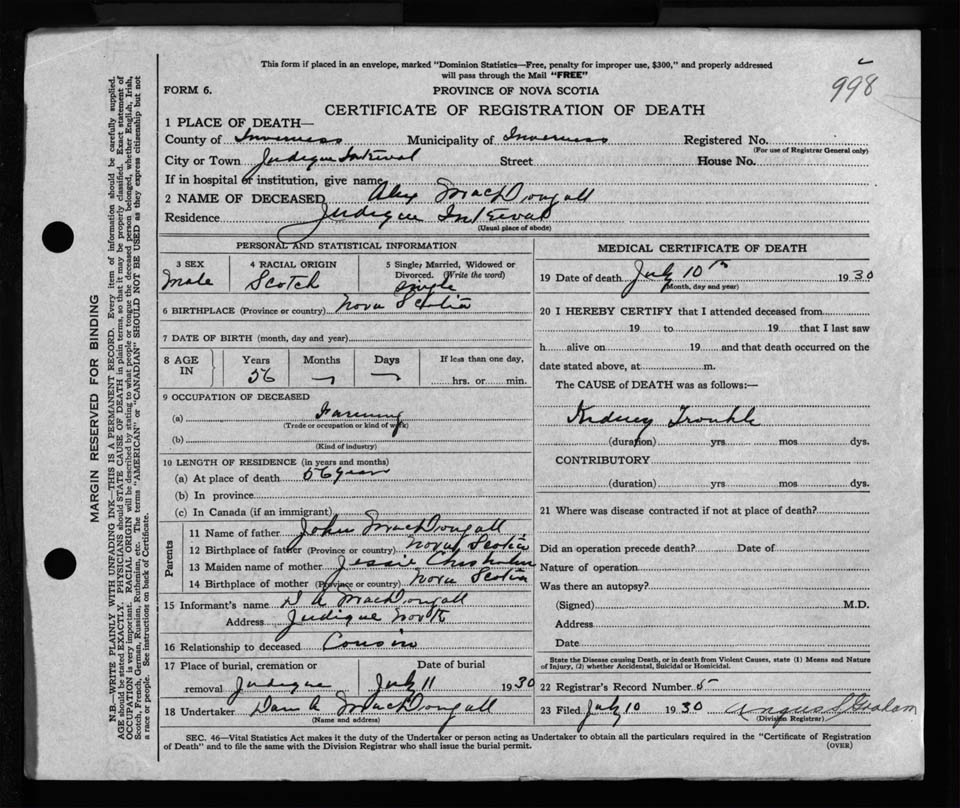 This form if placed in an envelope, marked "Dominion Statistics—Free, penalty for improper use, $300," and properly addressed
will pass through the Mail "FREE"
998
FORM 6.
PROVINCE OF NOVA SCOTIA
CERTIFICATE OF REGISTRATION OF DEATH
1 PLACE OF DEATH—
County of Inverness Municipality of Inverness Registered No.
(For use of Registrar General only)
City or Town Judique Interval Street House No.
If in hospital or institution, give name
2 NAME OF DECEASED Alex MacDougall
Residence Judique Interval
(Usual place of abode)
PERSONAL AND STATISTICAL INFORMATION
3 SEX 4 RACIAL ORIGIN 5 Single, Married, Widowed or
Divorced. (Write the word)
Male Scotch Single
6 BIRTHPLACE (Province or country) Nova Scotia
7 DATE OF BIRTH (month, day and year)
8 AGE IN Years Months Days If less than one day,
56 — — hrs. or min.
9 OCCUPATION OF DECEASED
(a) Farming
(Trade or occupation or kind of work)
(b)
(Kind of industry)
10 LENGTH OF RESIDENCE (in years and months)
(a) At place of death 56 years
(b) In province
(c) In Canada (if an immigrant)
Parents
11 Name of father John MacDougall
12 Birthplace of father (Province or country) Nova Scotia
13 Maiden name of mother Jessie Chisholm
14 Birthplace of mother (Province or country) Nova Scotia
15 Informant's name D A MacDougall
Address Judique North
16 Relationship to deceased Cousin
17 Place of burial, cremation or Date of burial
removal Judique July 11 1930
18 Undertaker Dan A MacDougall
(Name and address)
MEDICAL CERTIFICATE OF DEATH
19 Date of death July 10th 1930
(Month, day and year)
20 I HEREBY CERTIFY that I attended deceased from
19 to 19 that I last saw
h alive on 19 and that death occurred on the
date stated above, at m.
The CAUSE of DEATH was as follows:—
Kidney Trouble
(duration) yrs mos dys.
CONTRIBUTORY
(duration) yrs. mos. dys.
21 Where was disease contracted if not at place of death?
Did an operation precede death? Date of
Nature of operation
Was there an autopsy?
(Signed) M.D.
Address
Date
State the Disease causing Death, or in death from Violent Causes, state (1) Means and Nature
of Injury, (2) whether Accidental, Suicidal or Homicidal.
22 Registrar's Record Number 5
23 Filed July 10 1930 Angus S Graham
(Division Registrar)
SEC. 46—Vital Statistics Act makes it the duty of the Undertaker or person acting as Undertaker to obtain all the particulars required in the "Certificate of Registration
of Death" and to file the same with the Division Registrar who shall issue the burial permit. (OVER)
MARGIN RESERVED FOR BINDING
N.B.—WRITE PLAINLY WITH UNFADING INK—THIS IS A PERMANENT RECORD. Every item of information should be carefully supplied.
AGE should be stated EXACTLY. PHYSICIANS should STATE CAUSE OF DEATH in plain terms, so that it may be properly classified. Exact statement of
OCCUPATION is very important. RACIAL ORIGIN will be described by stating to what people or tongue the deceased person belonged, whether English, Irish,
Scotch, French, German, Russian, Ruthenian, etc. The terms "AMERICAN" or "CANADIAN" SHOULD NOT BE USED as they express citizenship but not
a race or people. See instructions on back of Certificate.